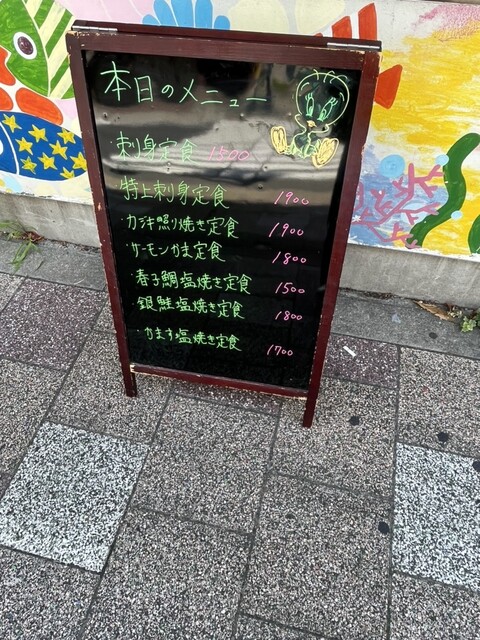 本日のメニュー
・刺身定食 1500
特上刺身定食 1900
・カジキ照り焼き定食 1900
・サーモンかま定食 1800
・春子鯛塩焼き定食 1500
・銀鮭塩焼き定食 1800
・かます塩焼き定食 1700